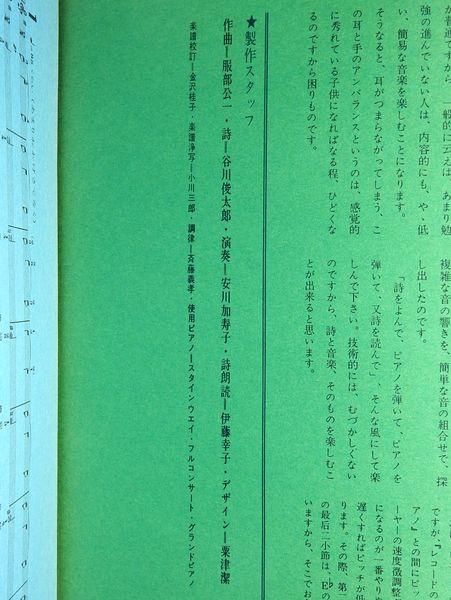 が普通ですから、一般的に云えば、あまり勉
強の進んでいない人は、内容的にも、やゝ低
い、簡易な音楽を楽しむことになります。
そうなると、耳がつまらながってしまう、こ
の耳と手のアンバランスというのは、感覚的
に秀れている子供になればなる程、ひどくな
るのですから困りものです。
複雑な音の響きを、簡単な音の組合せで、探
し出したのです。
「詩をよんで、ピアノを弾いて、ピアノを
弾いて、又詩を読んで」、そんな風にして楽
しんで下さい。技術的には、むづかしくない
のですから、詩と音楽、そのものを楽しむこ
とが出来ると思います。
ですが、『レコードの
アノ』との間にピッ
になるのが一番やりや
ーヤーの速度微調整
遅くすればピッチが低
ります。その際、第二
の最后二小節は、E♭の
いますから、そこでお
★製作スタッフ
作曲―服部公一・詩―谷川俊太郎・演奏―安川加寿子・詩朗読―伊藤幸子・デザイン―粟津潔
楽譜校訂―金沢桂子・楽譜浄写―小川三郎・調律―斉藤義孝・使用ピアノ―スタインウエイ・フルコンサート・グランドピアノ